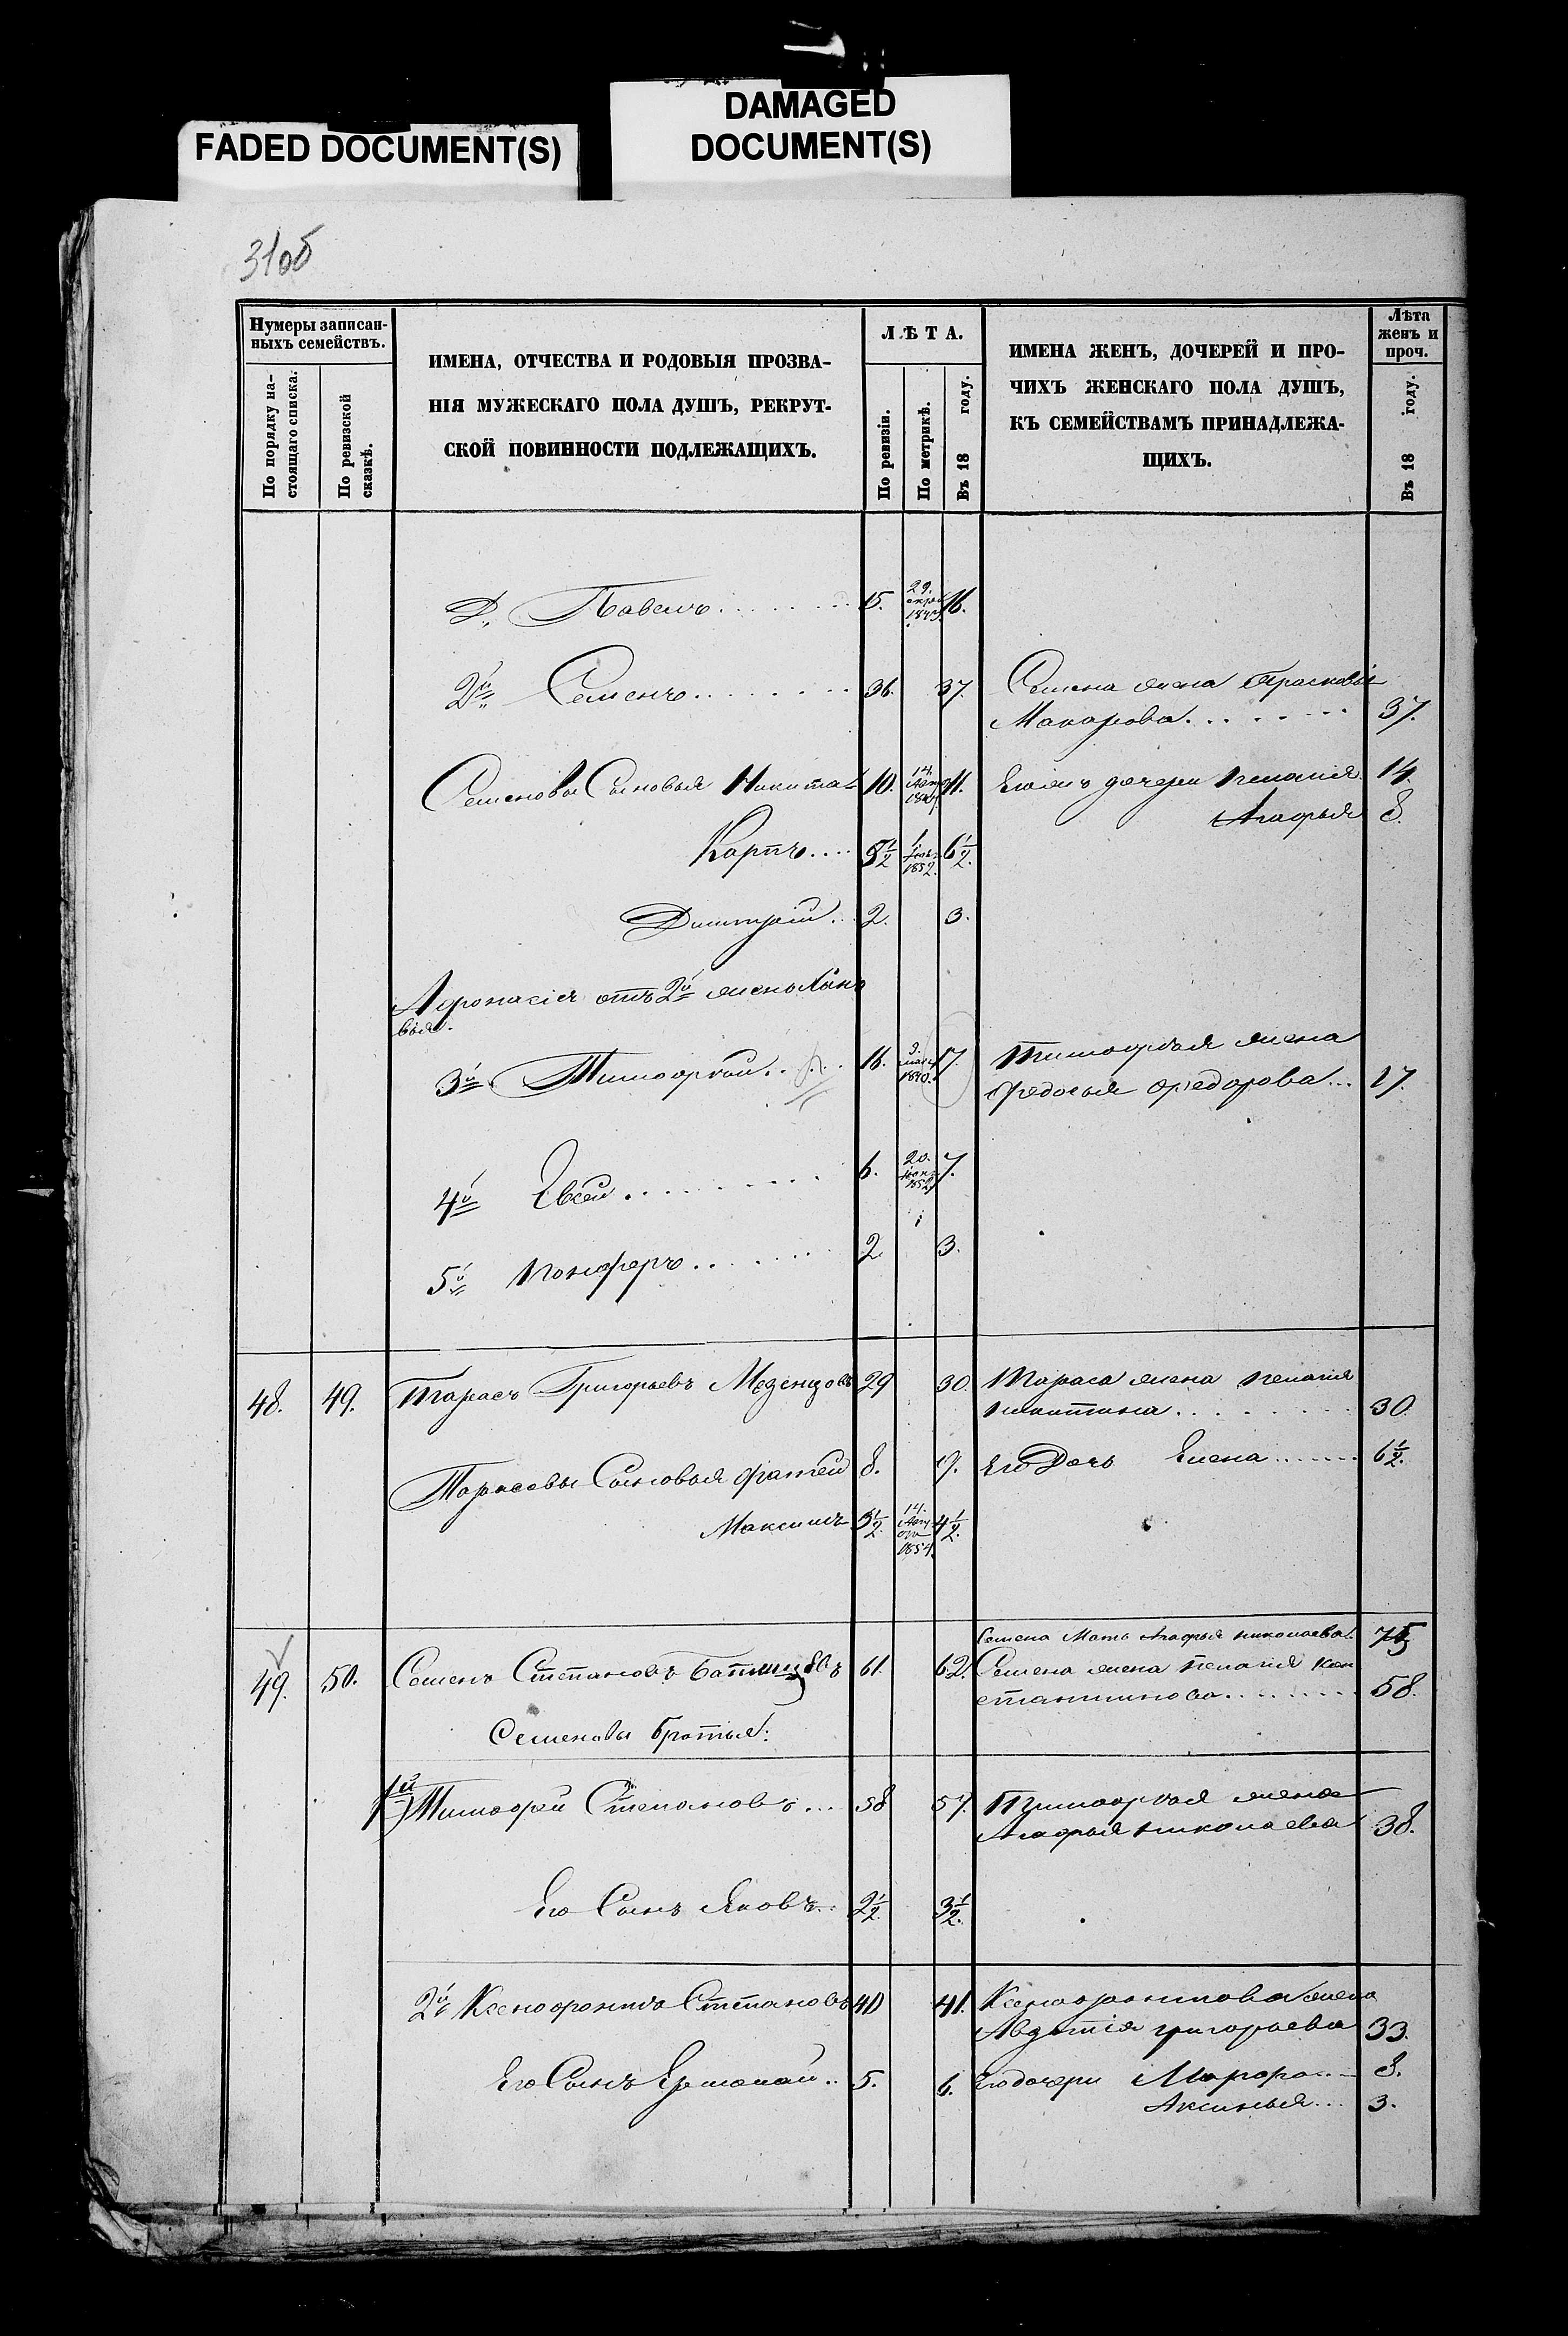 FADED DOCUMENT(S)
DAMAGED
DOCUMENT(S)
31об
Нумеры записан-
ныхъ семействъ.
По порядку на-
стоящаго списка.
По ревизской
сказкѣ.
ИМЕНА, ОТЧЕСТВА И РОДОВЫЯ ПРОЗВА-
НІЯ МУЖЕСКАГО ПОЛА ДУШЪ, РЕКРУТ-
СКОЙ ПОВИННОСТИ ПОДЛЕЖАЩИХЪ.
ЛѢТА.
По ревизіи.
По метрикѣ.
Въ 18 году.
ИМЕНА ЖЕНЪ, ДОЧЕРЕЙ И ПРО-
ЧИХЪ ЖЕНСКАГО ПОЛА ДУШЪ,
КЪ СЕМЕЙСТВАМЪ ПРИНАДЛЕЖА-
ЩИХЪ.
Лѣта
женъ и
проч.
Въ 18 году.
Павелъ 15. 29. 16.
2й Семенъ 36. 37. Семена жена Прасковья
Макарова 37.
Семеновы Сыновья Никита 10. 14. 11. Его дочери Пелагія 14.
Агафья 8.
Карпъ 5½ 1 1852. 6½.
Дмитрій 2. 3.
Афонасія отъ 2й жены Сыно
вья.
3й Тимофей 16. 3. 1840. 17. Тимофея жена
Федосья Федорова 17.
4й Евсей 6. 20. 7.
5й Понферъ 2 3.
48. 49. Тарасъ Григорьевъ Мезенцовъ 29 30. Тараса жена Пелагія
Никитина 30.
Тарасовы Сыновья Фатей 8. 9. Его Дочь Елена 6½.
Максимъ 3½ 14. 1854. 4½.
Семена Мать Агафья Николаева 75
49. 50. Семенъ Степановъ 61. 62. Семена жена Пелагія Кон
стантинова 58.
Семеновы братья:
1й Тимофей Степановъ 58 57. Тимофея жена
Агафья Николаева 38.
Его Сынъ Яковъ 2½ 3½.
2й Ксенофонтъ Степановъ 40 41. Ксенофонтова жена
Авдотія Григорьева 33.
Его Сынъ Ермолай 5. 6. Его дочери Марфа 8.
Аксинья 3.